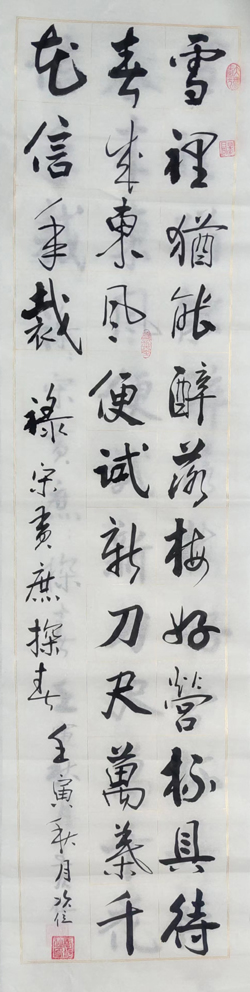 雪裡猶能醉落梅好營杯具待
春來東風便試新刀尺萬葉千
花信手裁 祿宋黃庶探春 壬寅秋月